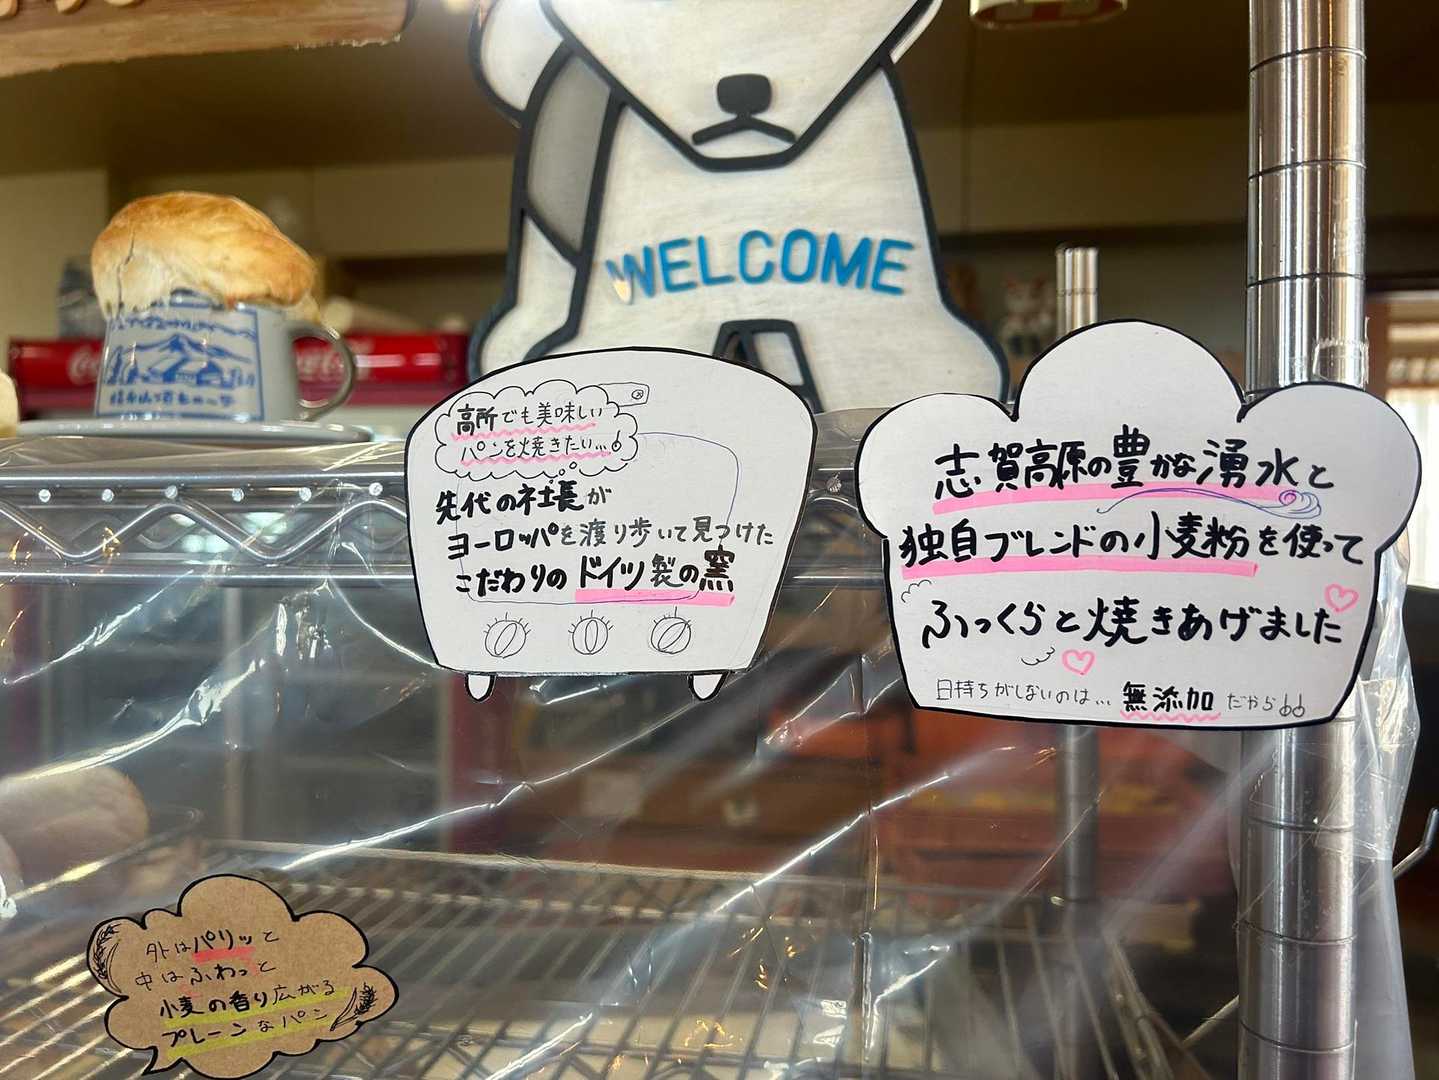 WELCOME
高所でも美味しい
パンを焼きたい…!
先代の社長が
ヨーロッパを渡り歩いて見つけた
こだわりのドイツ製の窯
志賀高原の豊かな湧水と
独自ブレンドの小麦粉を使って
ふっくらと焼きあげました
日持ちがしないのは…無添加だから!!
外はパリッと
中はふわっと
小麦の香り広がる
プレーンなパン